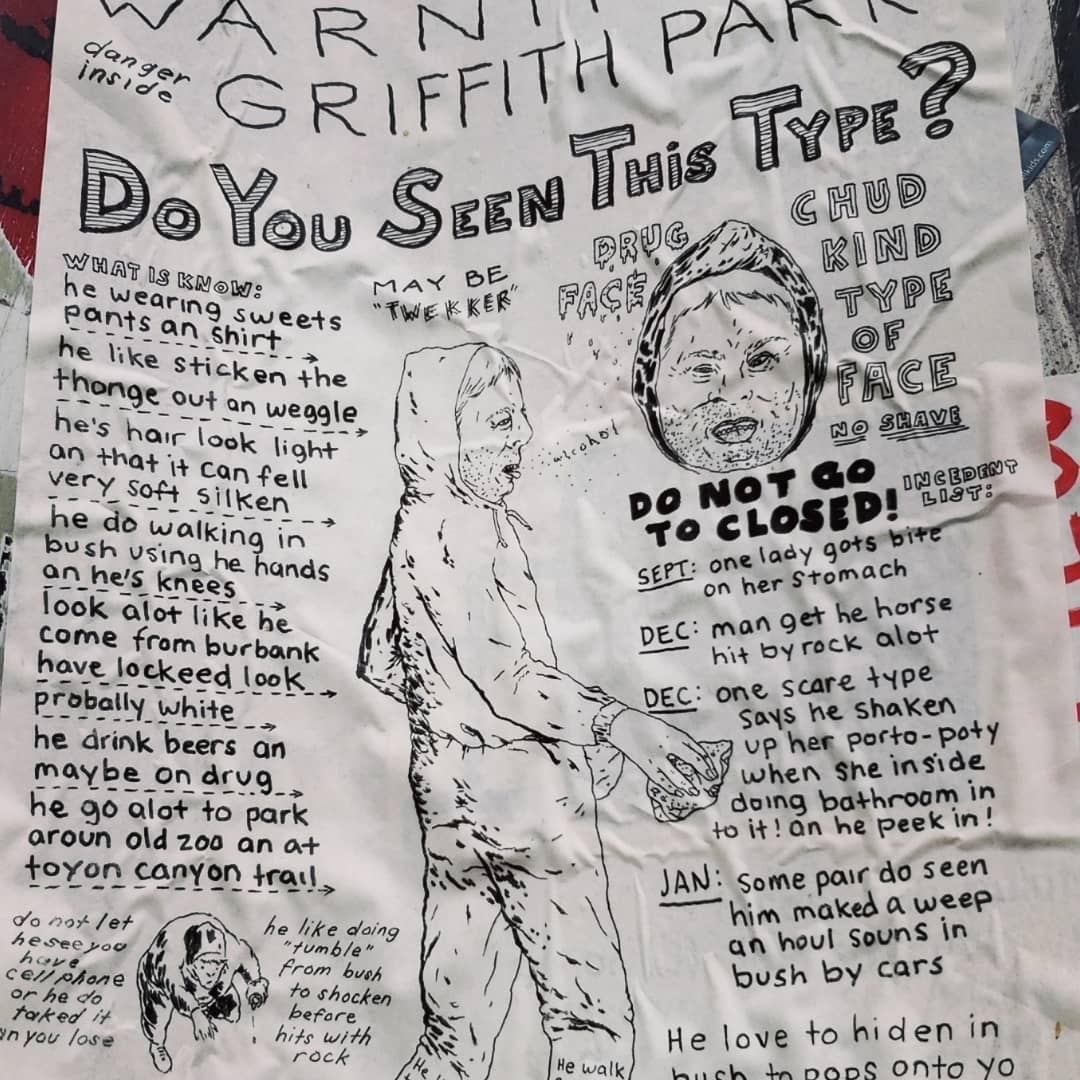 danger
inside
GRIFFITH PARK
DO YOU SEEN THIS TYPE?
WHAT IS KNOW:
he wearing sweets
pants an shirt
he like sticken the
thonge out an weggle
he's hair look light
an that it can fell
very soft silken
he do walking in
bush using he hands
an he's knees
look alot like he
come from burbank
have lockeed look
probally white
he drink beers an
maybe on drug
he go alot to park
aroun old zoo an at
toyon canyon trail
MAY BE
"TWEKKER"
DRUG
FACE
CHUD
KIND
TYPE
OF
FACE
NO SHAVE
DO NOT GO
TO CLOSED!
INCEDENT
LIST:
SEPT: one lady gots bite
on her stomach
DEC: man get he horse
hit by rock alot
DEC: one scare type
says he shaken
up her porto-poty
when she inside
doing bathroom in
to it! an he peek in!
JAN: some pair do seen
him maked a weep
an houl souns in
bush by cars
do not let
he see you
have
cell phone
or he do
taked it
an you lose
he like doing
"tumble"
from bush
to shocken
before
hits with
rock
He
He walk
He love to hiden in
bush to pops onto yo